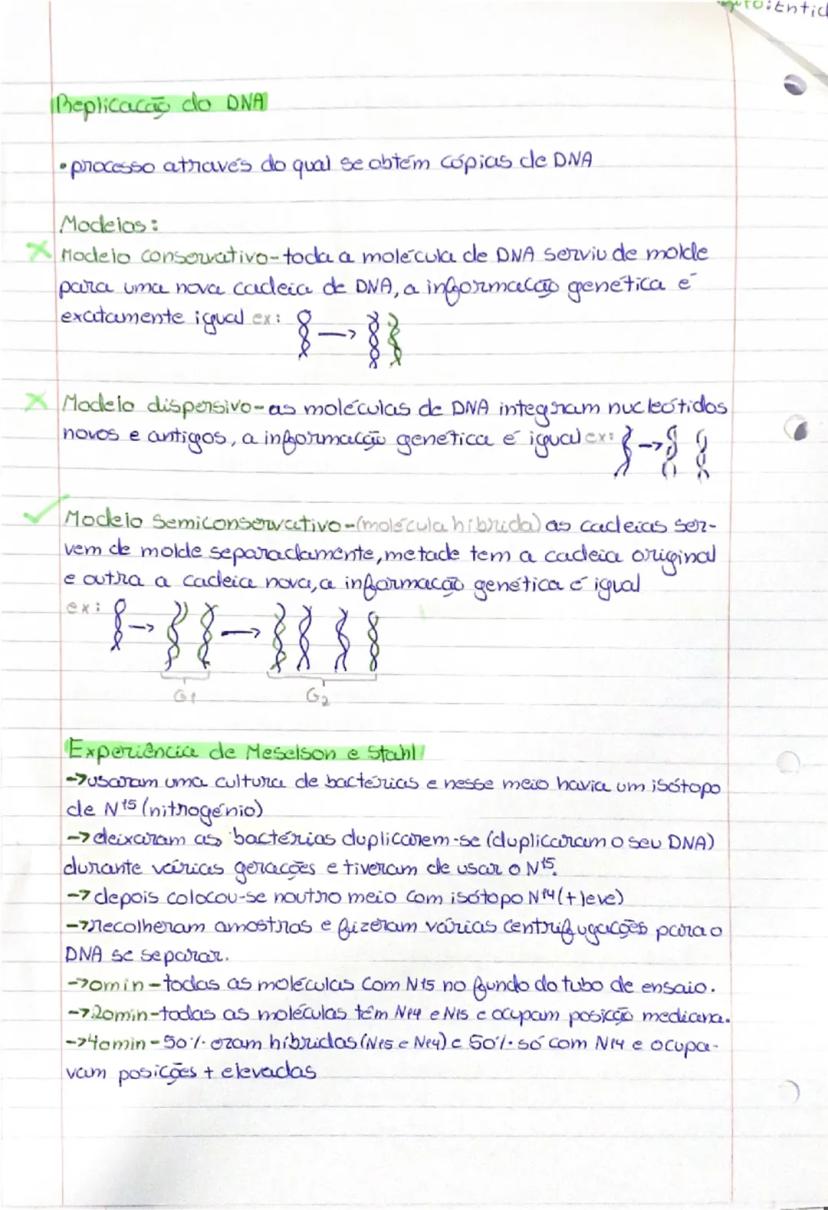 Replicação do DNA
•processo através do qual se obtém cópias de DNA
Modelos:
Modelo conservativo-toda a molécula de DNA serviu de molde
para uma nova cadeia de DNA, a informação genética é
exatamente igual ex:
Modelo dispersivo-as moléculas de DNA integram nucleótidos
novos e antigos, a informação genética é igual ex:
Modelo semiconservativo-(molécula híbrida) as cadeias ser-
vem de molde separadamente, metade tem a cadeia original
e outra a cadeia nova, a informação genética é igual
ex:
G1 G2
Experiência de Meselson e Stahl
→usaram uma cultura de bactérias e nesse meio havia um isótopo
de N15 (nitrogénio)
→deixaram as bactérias duplicarem-se (duplicaram o seu DNA)
durante várias gerações e tiveram de usar o N15.
→depois colocou-se noutro meio com isótopo N14 (+leve)
→recolheram amostras e fizeram várias centrifugações para o
DNA se separar.
→0min-todas as moléculas com N15 no fundo do tubo de ensaio.
→20min-todas as moléculas têm N14 e N15 e ocupam posição mediana.
→40min-50% eram híbridas (N15 e N14) e 50% só com N14 e ocupa-
vam posições + elevadas